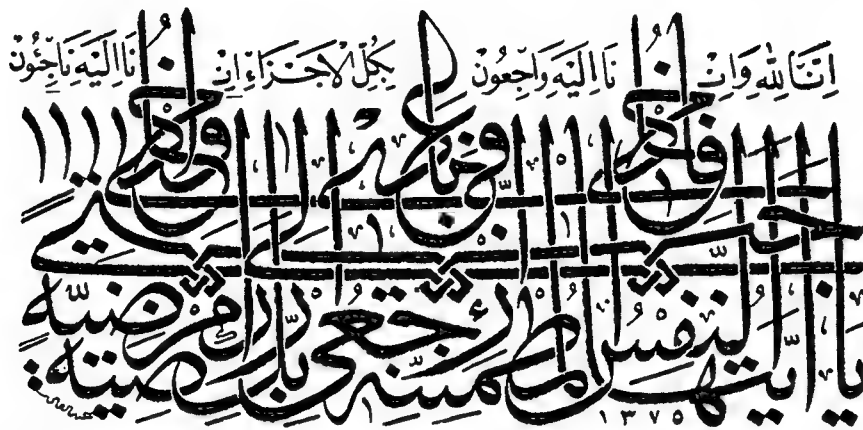 اِنَّا لِلّٰهِ وَاِنْ نَا اِلَيْهِ رَاجِعُونْ بِكُلِّ الْاَجْزَاءِ اِنْ نَا اِلَيْهِ
يا ايتها النفس المطمئنة ارجعي الى ربك راضية مرضية
فادخلي في عبادي وادخلي جنتي
١٣٧٥